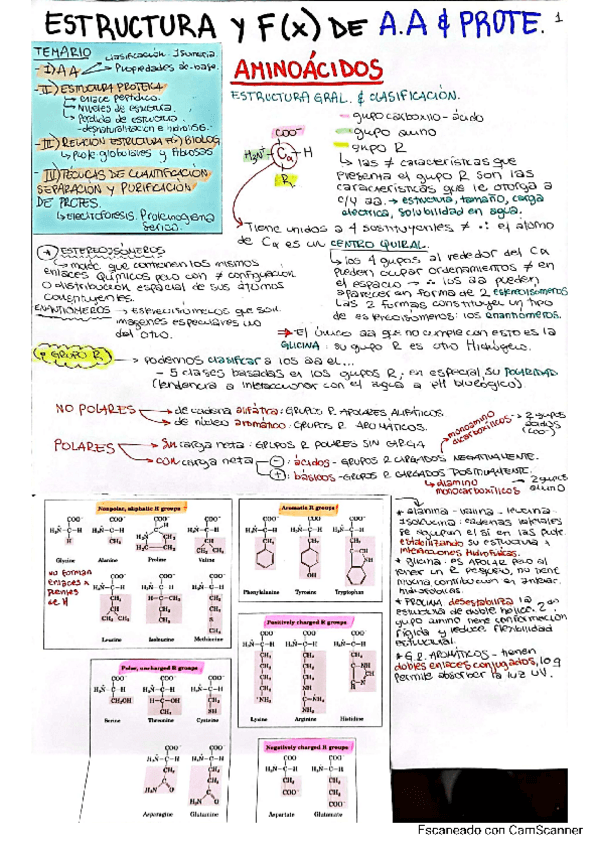 ESTRUCTURA Y F(x) DE A.A & PROTE. 1
TEMARIO
clasificación. Isomería.
- I) AA
Propiedades ác-base.
- II) ESTRUCTURA PROTEICA
enlace peptídico.
Niveles de estructura.
Pérdida de estructura
- desnaturalización e hidrólisis.
- III) RELACIÓN ESTRUCTURA F(x) BIOLOG
Prote globulares y fibrosas
- III) TÉCNICAS DE CUANTIFICACIÓN
SEPARACIÓN Y PURIFICACIÓN
DE PROTES.
electroforesis. Proteinograma
sérico.
AMINOÁCIDOS
ESTRUCTURA GRAL. & CLASIFICACIÓN.
COO⁻
H₃N⁺ Cα H
R
grupo carboxilo - ácido
grupo amino
grupo R
las ≠ características que
presenta el grupo R son las
características que le otorga a
c/u aa. → estructura, tamaño, carga
eléctrica, solubilidad en agua.
Tiene unidos a 4 sustituyentes ≠ ∴ el átomo
de Cα es un CENTRO QUIRAL.
los 4 grupos al rededor del Cα
pueden ocupar ordenamientos ≠ en
el espacio → ∴ los aa pueden
aparecer en forma de 2 estereoisómeros
Las 2 formas constituyen un tipo
de estereoisómeros: los enantiómeros.
El único aa que no cumple con esto es la
GLICINA: su grupo R es otro Hidrógeno.
* ESTEREOISÓMEROS
→ moléc que contienen los mismos
enlaces químicos pero con ≠ configuración
o distribución espacial de sus átomos
constituyentes.
ENANTIÓMEROS → estereoisómeros que son
imágenes especulares uno
del otro.
• GRUPO R → podemos clasificar a los aa el...
- 5 clases basadas en los grupos R, en especial, su POLARIDAD
(tendencia a interaccionar con el agua a pH biológico)
NO POLARES
de cadena alifática: GRUPOS R APOLARES ALIFÁTICOS.
de núcleo aromático: GRUPOS R AROMÁTICOS.
POLARES
Sin carga neta: GRUPOS R POLARES SIN CARGA
CON carga neta
⊖: ácidos - GRUPOS R CARGADOS NEGATIVAMENTE.
monoamino
dicarboxílicos
→ 2 grupos
ácidos
(COO⁻)
⊕: básicos - GRUPOS R CARGADOS POSITIVAMENTE.
diamino
monocarboxílicos
→ 2 grupos
amino
Nonpolar, aliphatic R groups
Glycine Alanine Proline Valine
no forman
enlaces x
puentes
de H
Leucine Isoleucine Methionine
Aromatic R groups
Phenylalanine Tyrosine Tryptophan
Positively charged R groups
Lysine Arginine Histidine
Polar, uncharged R groups
Serine Threonine Cysteine
Asparagine Glutamine
Negatively charged R groups
Aspartate Glutamate
* alanina - valina - leucina -
isoleucina: cadenas laterales
se agrupan el sí en las prote.
estabilizando su estructura x
interacciones Hidrofóbicas.
* glicina: es APOLAR pero al
tener un R pequeño, no tiene
mucha contribución en interac.
hidrofóbicas.
* PROLINA desestabiliza la
estructura de doble hélice. 2
grupo amino tiene conformación
rígida y reduce flexibilidad
estructural.
* G.R. AROMÁTICOS - tienen
dobles enlaces conjugados, lo q
permite absorber la luz UV.
Escaneado con CamScanner